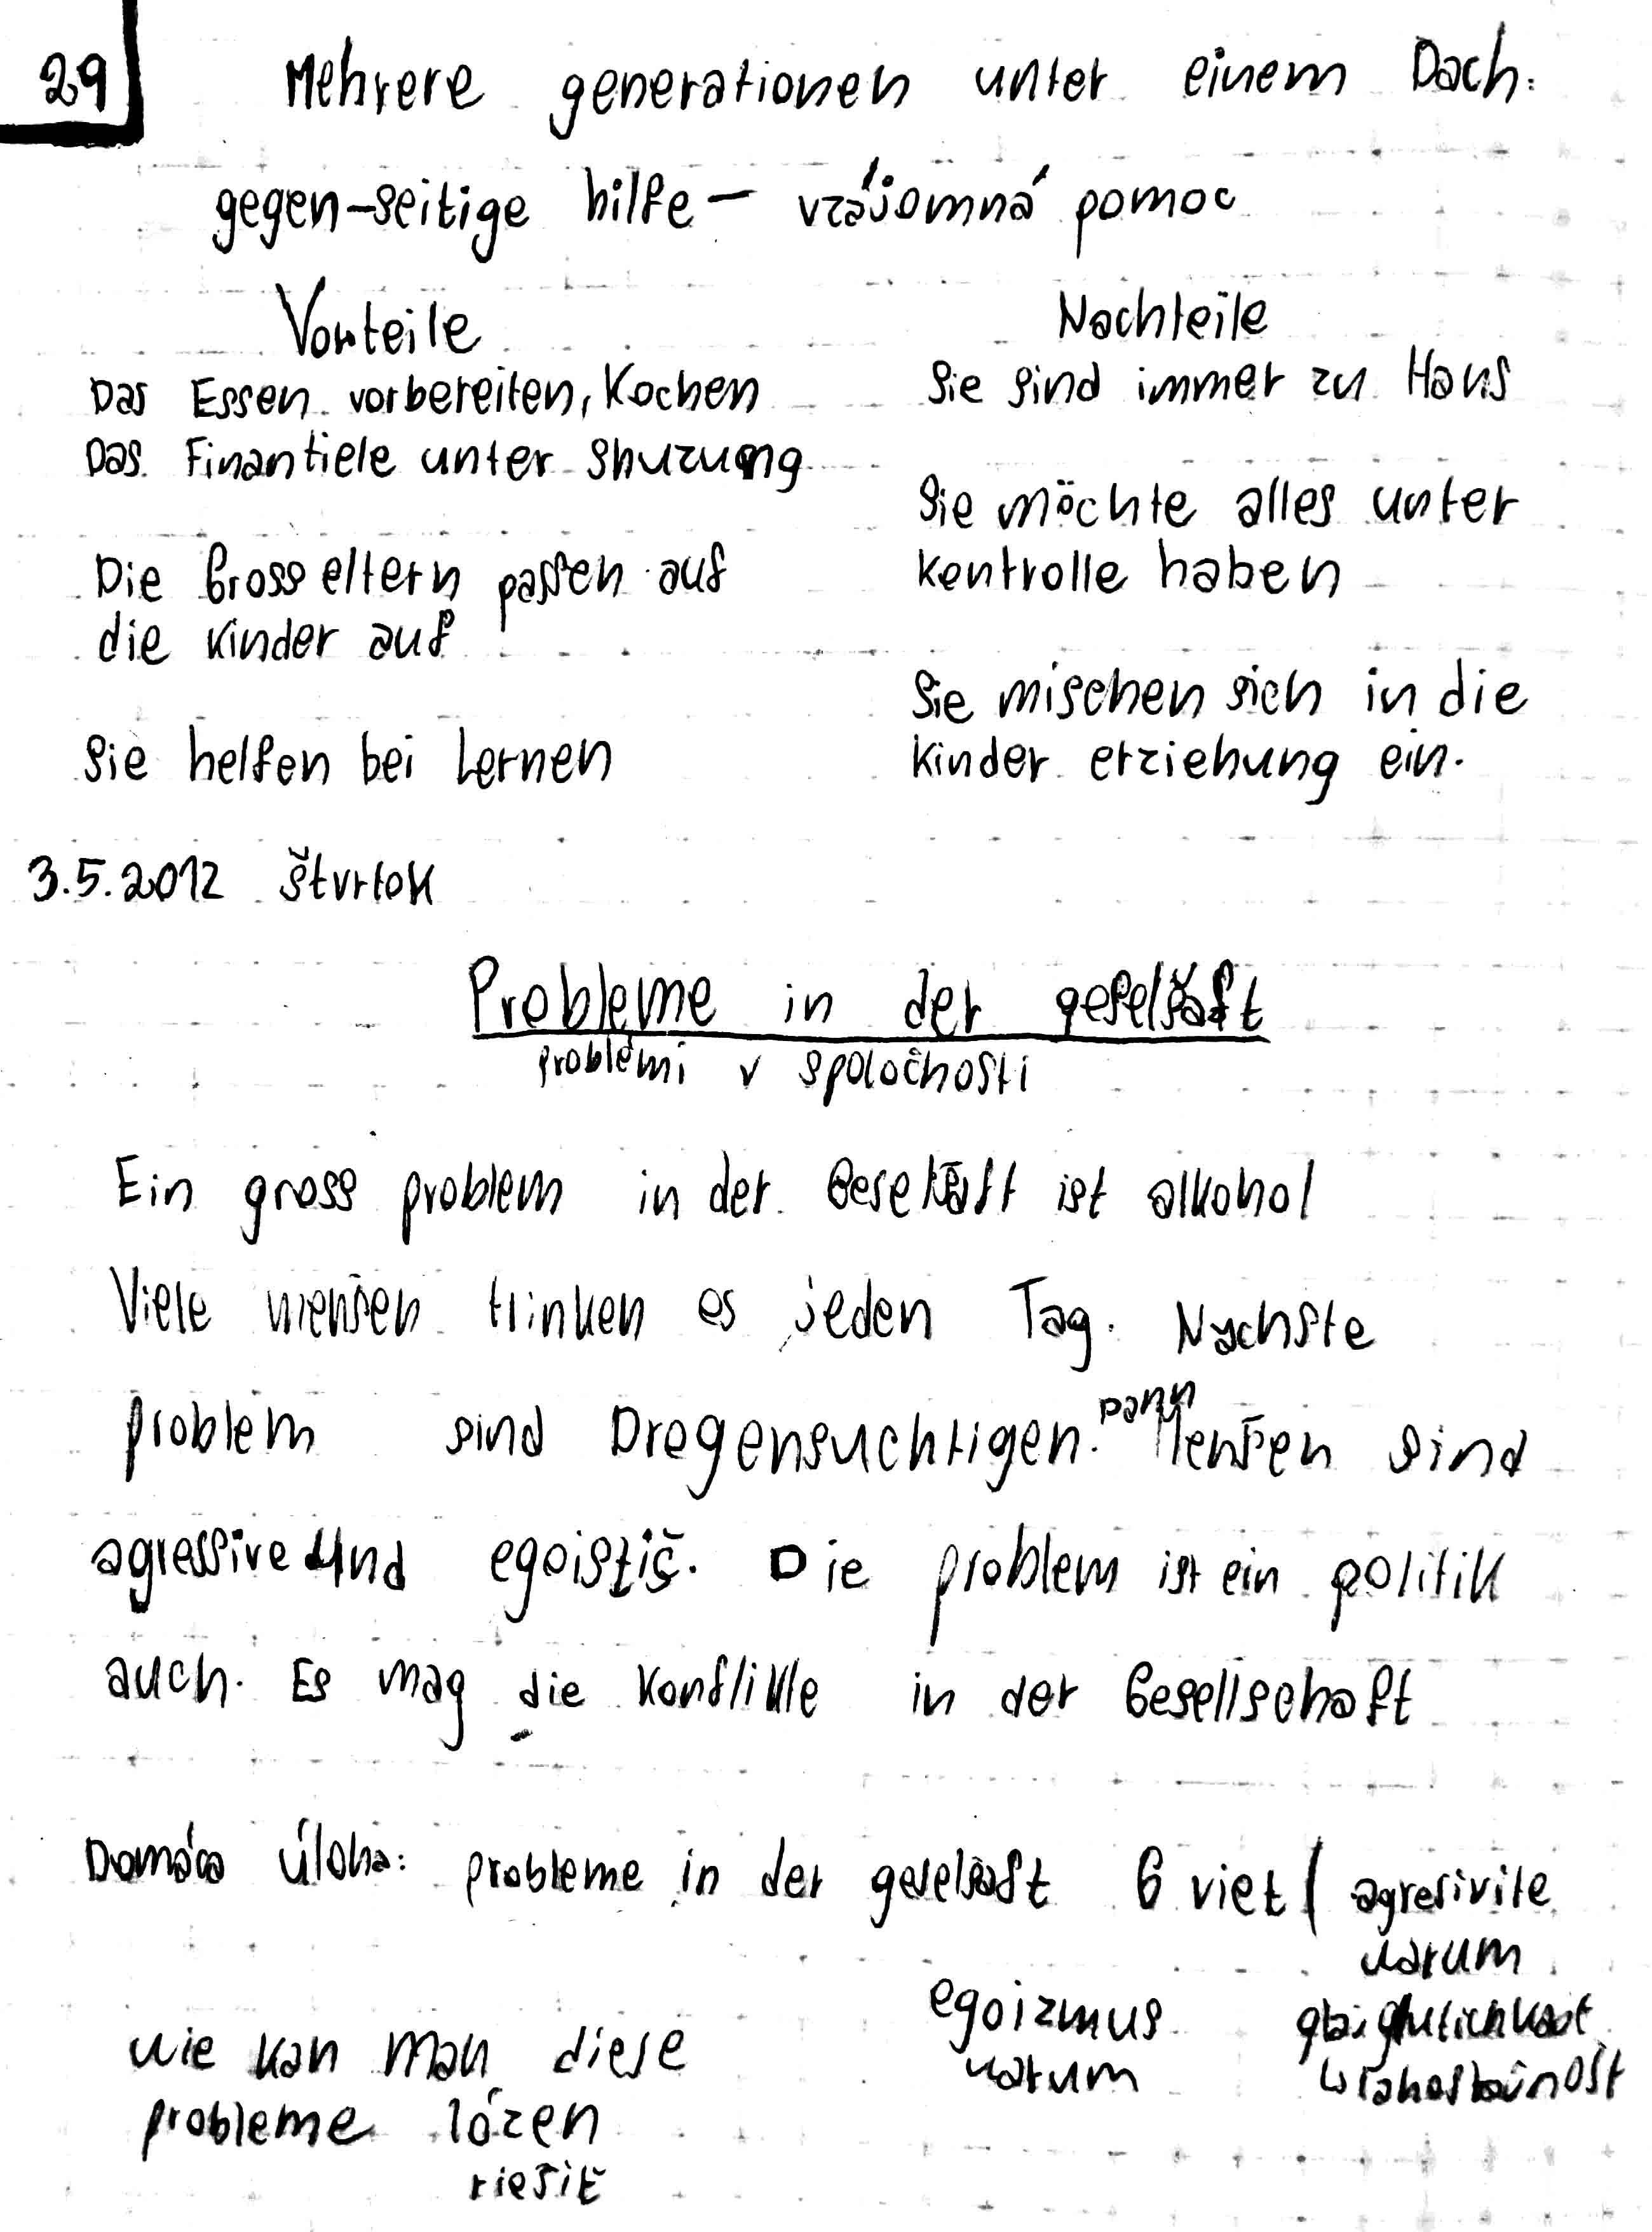 29
Mehrere generationen unter einem Dach:
gegen-seitige hilfe - vzájomná pomoc
Vorteile
Das Essen vorbereiten, Kochen
Das Finantiele unter shuzung
Die Grosseltern passen auf
die Kinder auf
Sie helfen bei Lernen
Nachteile
Sie sind immer zu Haus
Sie möchte alles unter
kontrolle haben
Sie mischen sich in die
kinder erziehung ein.
3.5.2012 štvrtok
Probleme in der geselšaft
problémi v spoločnosti
Ein gross problem in der Geselšaft ist alkohol
Viele menšen trinken es jeden Tag. Nachste
problem sind Drogensuchtigen. Dann Menšen sind
agressive und egoistiš. Die problem ist ein politik
auch. Es mag die Konflikte in der Gesellschaft
Domáca úloha: probleme in der geselšaft 6 viet ( agresivite
varum
egoizmus
varum
glaighulichkait
ľahostajnosť
wie kan man diese
probleme lózen
riešiť